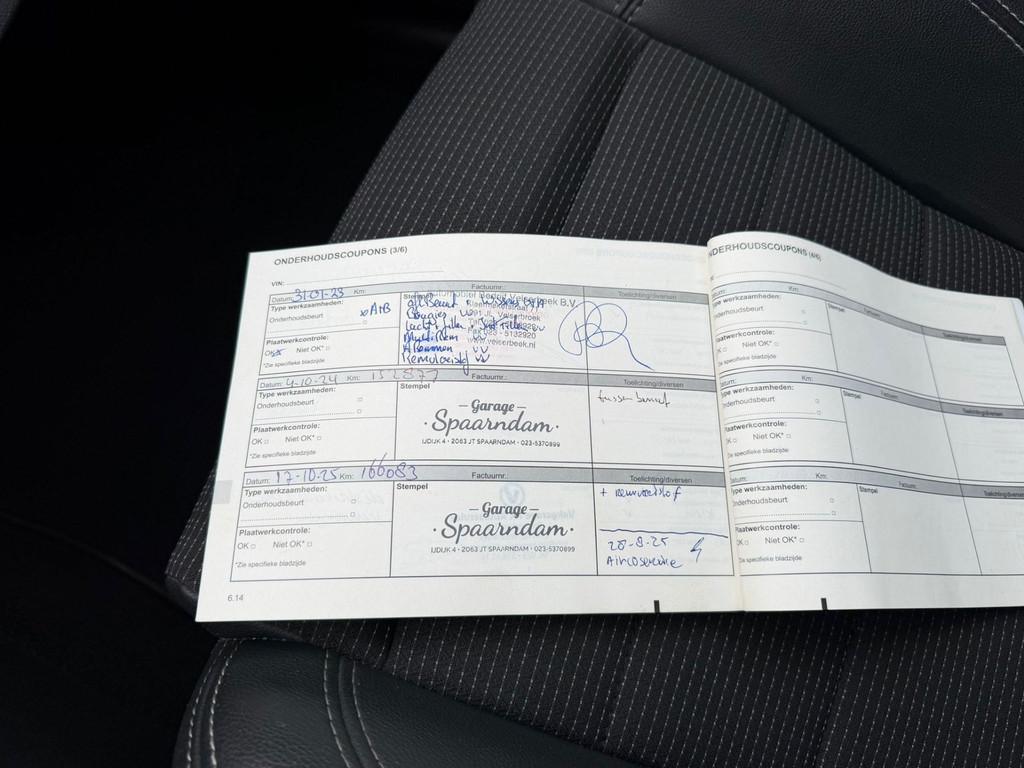 ONDERHOUDSCOUPONS (3/6)
VIN:
Datum: 31-01-23 Km: Factuurnr.:
Type werkzaamheden: Stempel Toelichting/diversen
Onderhoudsbeurt A+B
Plaatwerkcontrole:
OK Niet OK*
*Zie specifieke bladzijde
Bedrijf Velserbeek B.V.
Bougies
1991 JL Velserbroek
Fax 023 - 5132920
www.velserbeek.nl
Remvloeistof VV
Datum: 4-10-24 Km: 152877 Factuurnr.:
Type werkzaamheden: Stempel Toelichting/diversen
Onderhoudsbeurt
tussenbeurt
Garage
Spaarndam
IJDIJK 4 • 2063 JT SPAARNDAM • 023-5370899
Plaatwerkcontrole:
OK Niet OK*
*Zie specifieke bladzijde
Datum: 17-10-25 Km: 166083 Factuurnr.:
Type werkzaamheden: Stempel Toelichting/diversen
Onderhoudsbeurt
+ remvloeistof
Garage
Spaarndam
IJDIJK 4 • 2063 JT SPAARNDAM • 023-5370899
Plaatwerkcontrole:
OK Niet OK*
*Zie specifieke bladzijde
28-8-25
Aircoservice
6.14
NDERHOUDSCOUPONS (4/6)
Datum: Km: Factuurnr.:
Type werkzaamheden: Stempel Toelichting/diversen
Onderhoudsbeurt
Plaatwerkcontrole:
Niet OK*
*Zie specifieke bladzijde
Datum: Km: Factuurnr.:
Type werkzaamheden: Stempel Toelichting/diversen
Onderhoudsbeurt
Plaatwerkcontrole:
OK Niet OK*
*Zie specifieke bladzijde
Datum: Km: Factuurnr.:
Type werkzaamheden: Stempel Toelichting/diversen
Onderhoudsbeurt
Plaatwerkcontrole:
OK Niet OK*
*Zie specifieke bladzijde